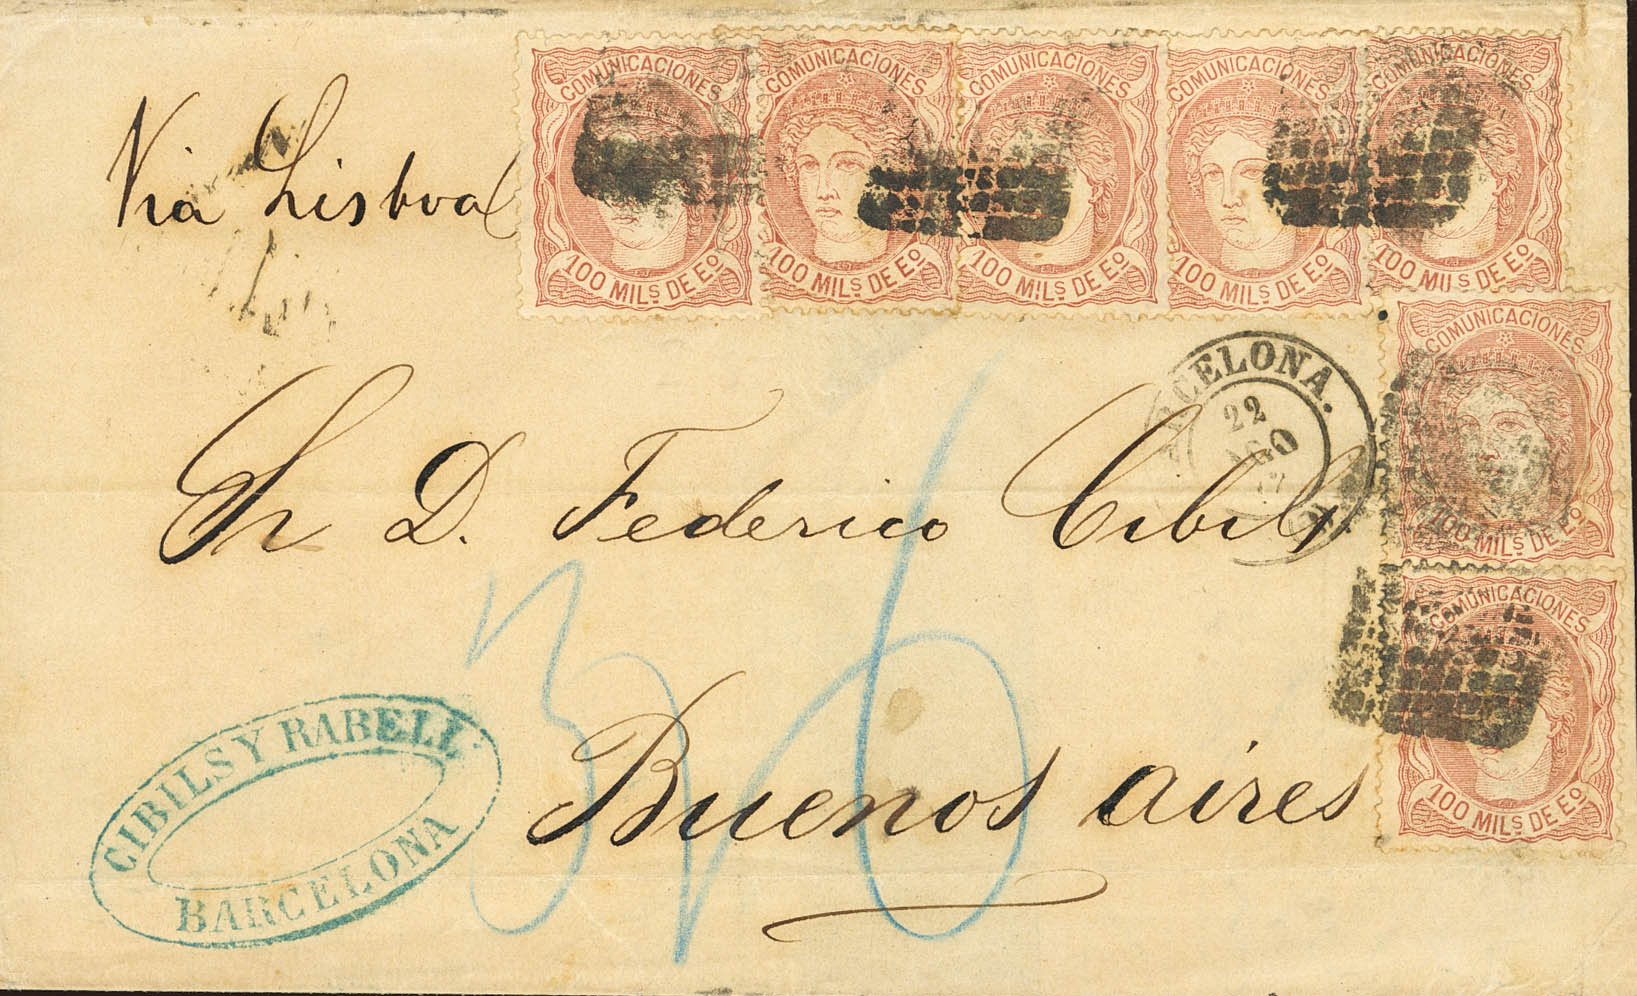 COMUNICACIONES
100 MILS DE Eº
COMUNICACIONES
100 MILS DE Eº
COMUNICACIONES
100 MILS DE Eº
COMUNICACIONES
100 MILS DE Eº
COMUNICACIONES
100 MILS DE Eº
Via Lisboa
COMUNICACIONES
100 MILS DE Eº
BARCELONA.
22
AGO
Sr D. Federico Cibils
COMUNICACIONES
100 MILS DE Eº
Buenos aires
CIBILS Y RABELL
BARCELONA